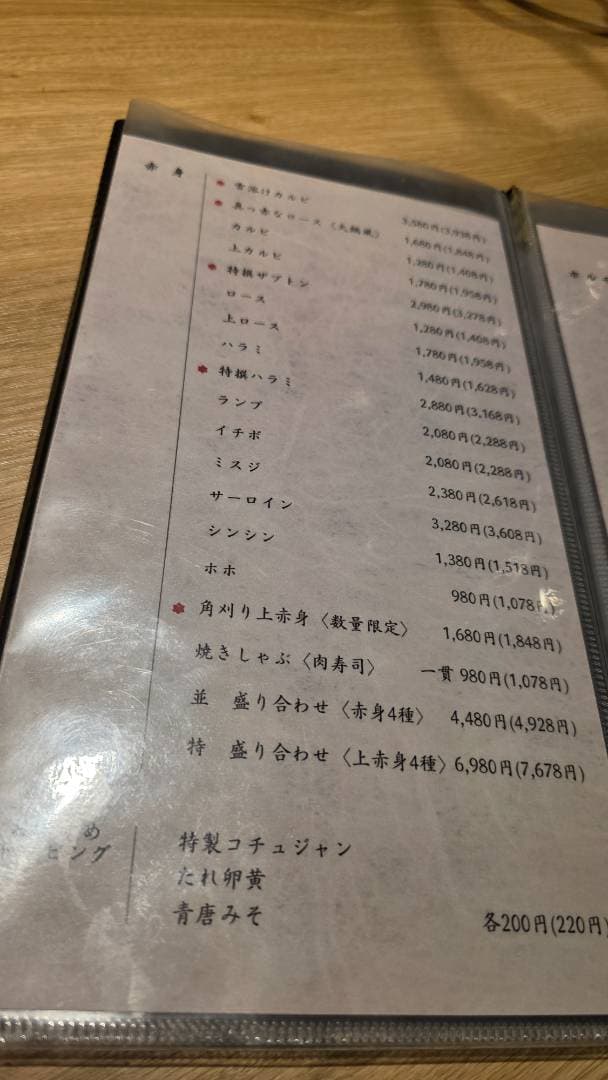 赤身
雪解けカルビ 3,580円(3,938円)
真っ赤なロース〈大鍋風〉 1,680円(1,848円)
カルビ 1,280円(1,408円)
上カルビ 1,780円(1,958円)
特撰ザブトン 2,980円(3,278円)
ロース 1,280円(1,408円)
上ロース 1,780円(1,958円)
ハラミ 1,480円(1,628円)
特撰ハラミ 2,880円(3,168円)
ランプ 2,080円(2,288円)
イチボ 2,080円(2,288円)
ミスジ 2,380円(2,618円)
サーロイン 3,280円(3,608円)
シンシン 1,380円(1,518円)
ホホ 980円(1,078円)
角刈り上赤身〈数量限定〉 1,680円(1,848円)
焼きしゃぶ〈肉寿司〉 一貫 980円(1,078円)
並 盛り合わせ〈赤身4種〉 4,480円(4,928円)
特 盛り合わせ〈上赤身4種〉 6,980円(7,678円)
め
ピング
特製コチュジャン
たれ卵黄
青唐みそ
各200円(220円)